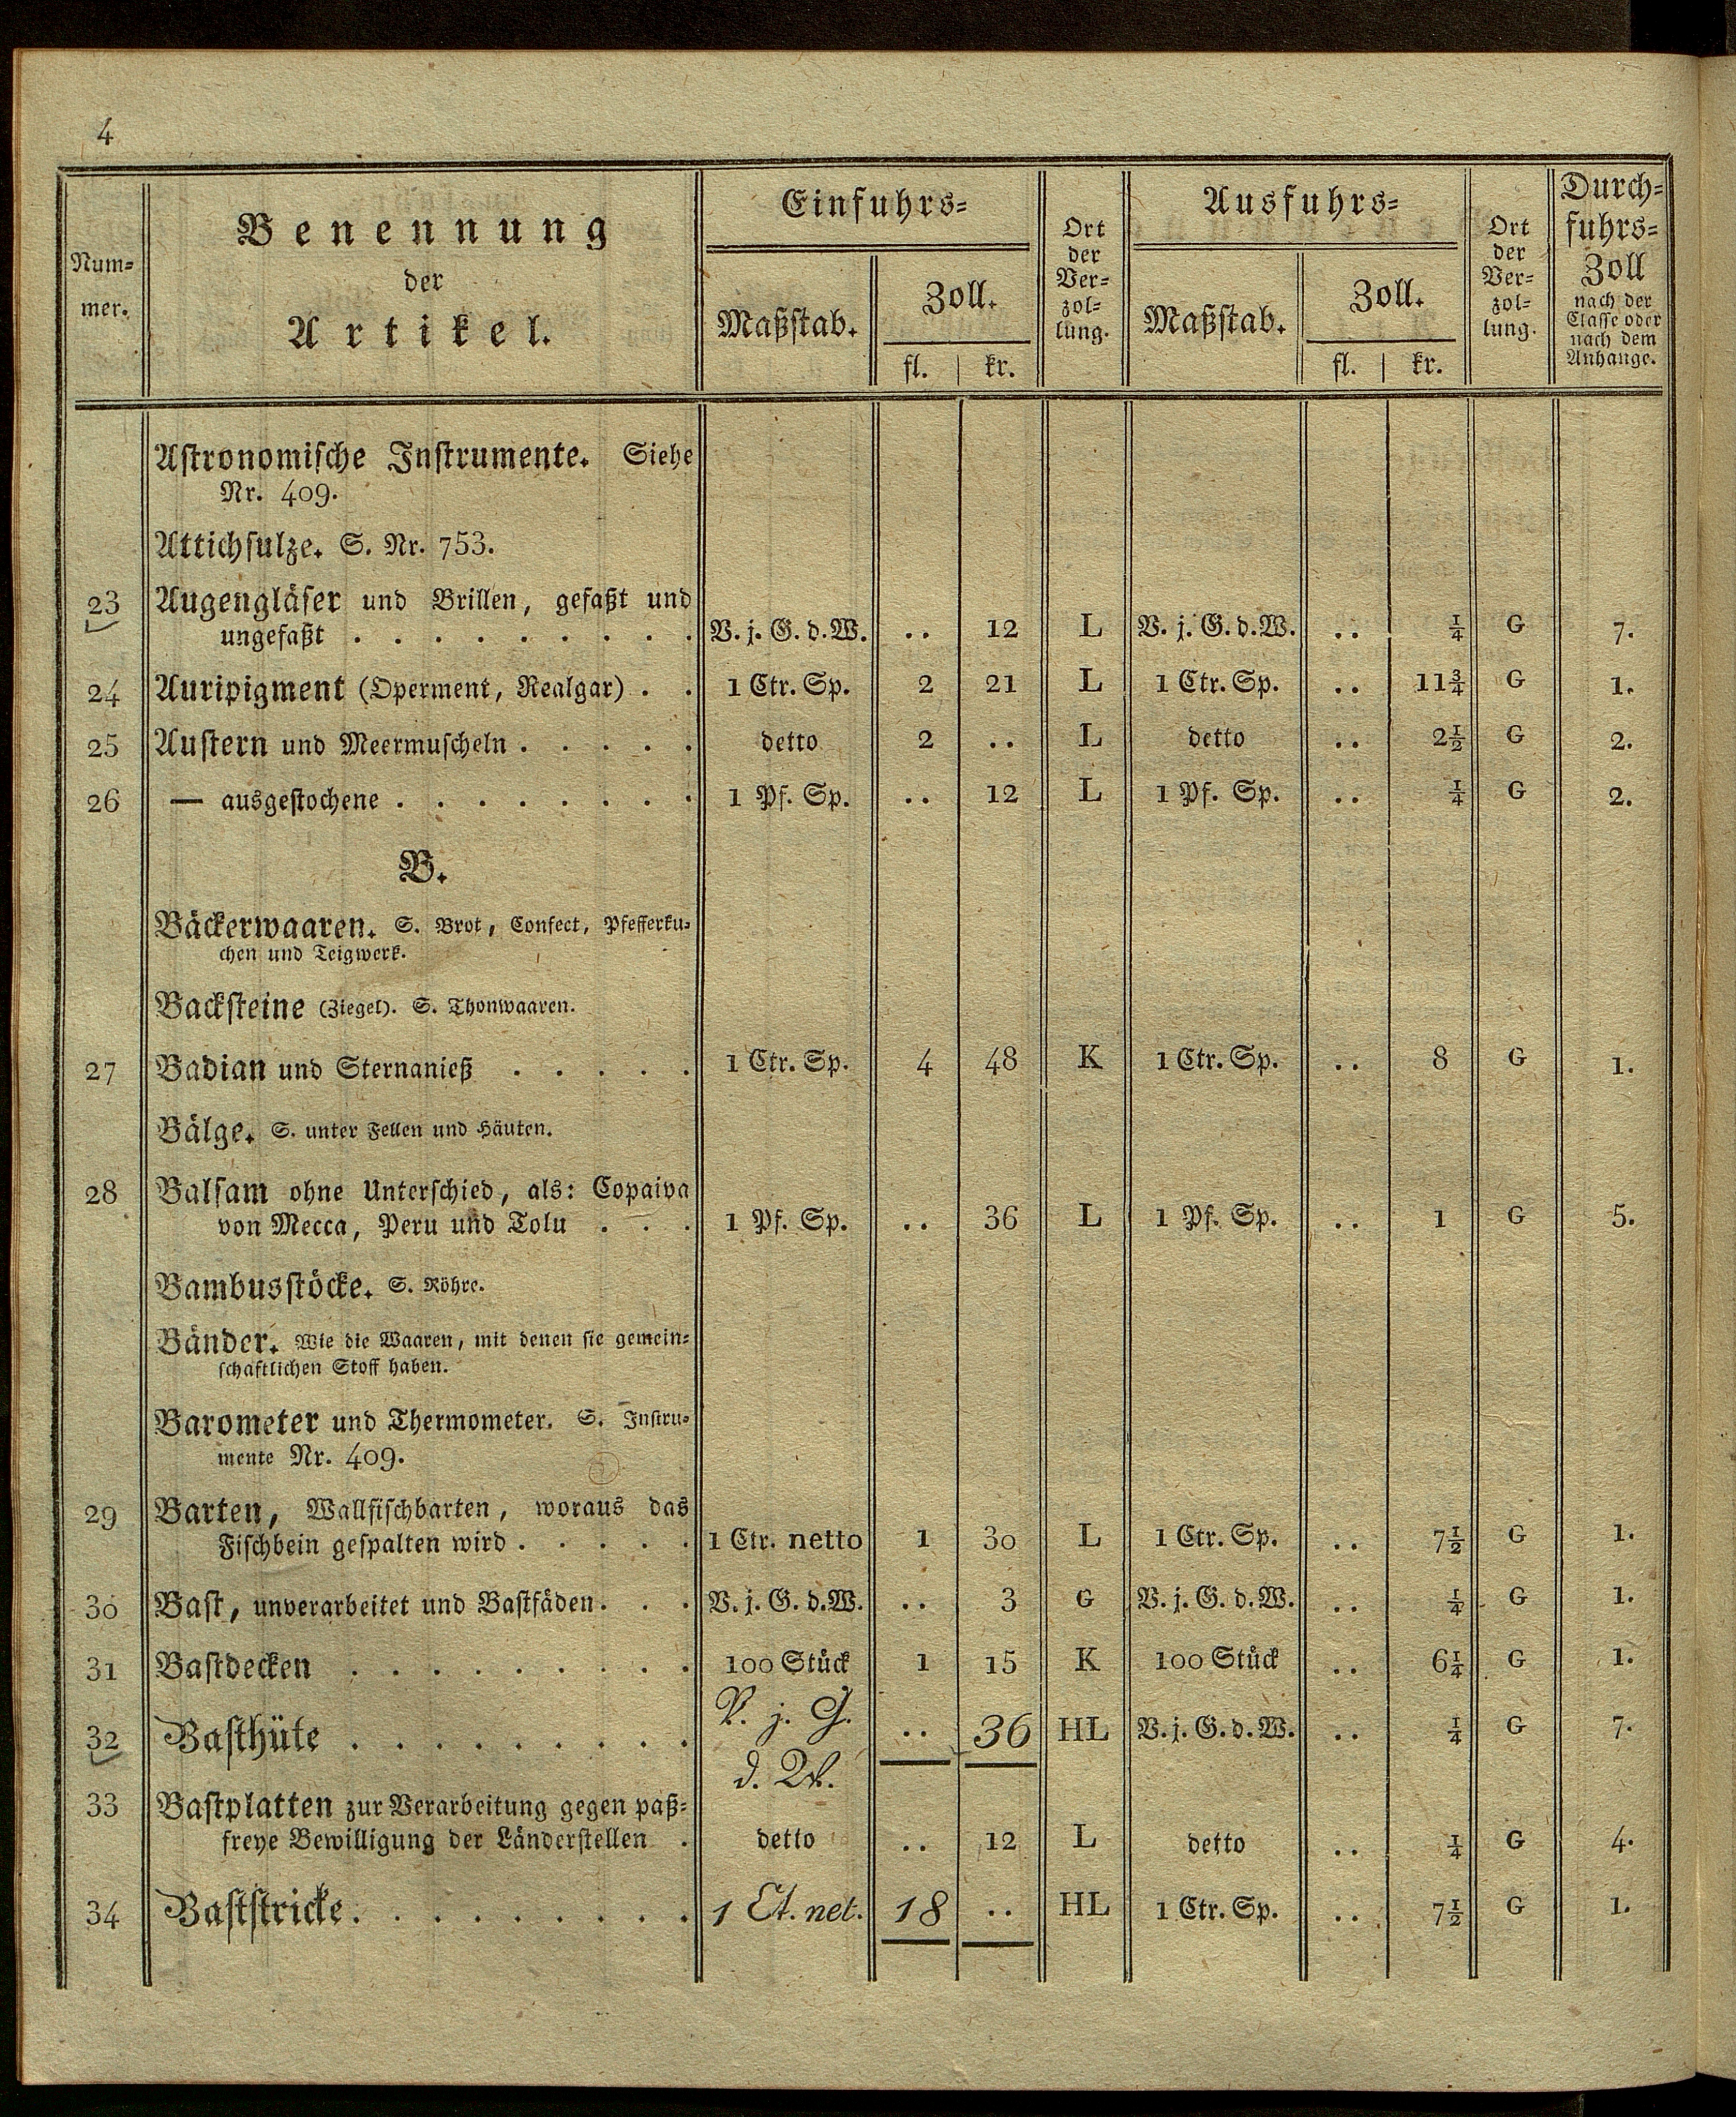 4
Num=
mer.
Benennung
der
Artikel.
Einfuhrs=
Maßstab.
Zoll.
fl. | kr.
Ort
der
Ver=
zol=
lung.
Ausfuhrs=
Maßstab.
Zoll.
fl. | kr.
Ort
der
Ver=
zol=
lung.
Durch=
fuhrs=
Zoll
nach der
Classe oder
nach dem
Anhange.
Astronomische Instrumente. Siehe
Nr. 409.
Attichsulze. S. Nr. 753.
23 Augengläser und Brillen, gefaßt und
ungefaßt . . . . . . . . . V. j. G. d. W. .. 12 L V. j. G. d. W. .. ¼ G 7.
24 Auripigment (Operment, Realgar) . . 1 Ctr. Sp. 2 21 L 1 Ctr. Sp. .. 11¾ G 1.
25 Austern und Meermuscheln . . . . . detto 2 .. L detto .. 2½ G 2.
26 — ausgestochene . . . . . . . . 1 Pf. Sp. .. 12 L 1 Pf. Sp. .. ¼ G 2.
B.
Bäckerwaaren. S. Brot, Confect, Pfefferku=
chen und Teigwerk.
Backsteine (Ziegel). S. Thonwaaren.
27 Badian und Sternanieß . . . . . 1 Ctr. Sp. 4 48 K 1 Ctr. Sp. .. 8 G 1.
Bälge. S. unter Fellen und Häuten.
28 Balsam ohne Unterschied, als: Copaiva
von Mecca, Peru und Tolu . . . 1 Pf. Sp. .. 36 L 1 Pf. Sp. .. 1 G 5.
Bambusstöcke. S. Röhre.
Bänder. Wie die Waaren, mit denen sie gemein=
schaftlichen Stoff haben.
Barometer und Thermometer. S. Instru=
mente Nr. 409.
29 Barten, Wallfischbarten, woraus das
Fischbein gespalten wird . . . . . 1 Ctr. netto 1 30 L 1 Ctr. Sp. .. 7½ G 1.
30 Bast, unverarbeitet und Bastfäden . . . V. j. G. d. W. .. 3 G V. j. G. d. W. .. ¼ G 1.
31 Bastdecken . . . . . . . . . 100 Stück 1 15 K 100 Stück .. 6¼ G 1.
32 Basthüte . . . . . . . . . V. j. G. .. 36 HL V. j. G. d. W. .. ¼ G 7.
d. W.
33 Bastplatten zur Verarbeitung gegen paß=
freye Bewilligung der Länderstellen . detto .. 12 L detto .. ¼ G 4.
34 Baststricke . . . . . . . . . 1 Ct. net. 18 .. HL 1 Ctr. Sp. .. 7½ G 1.